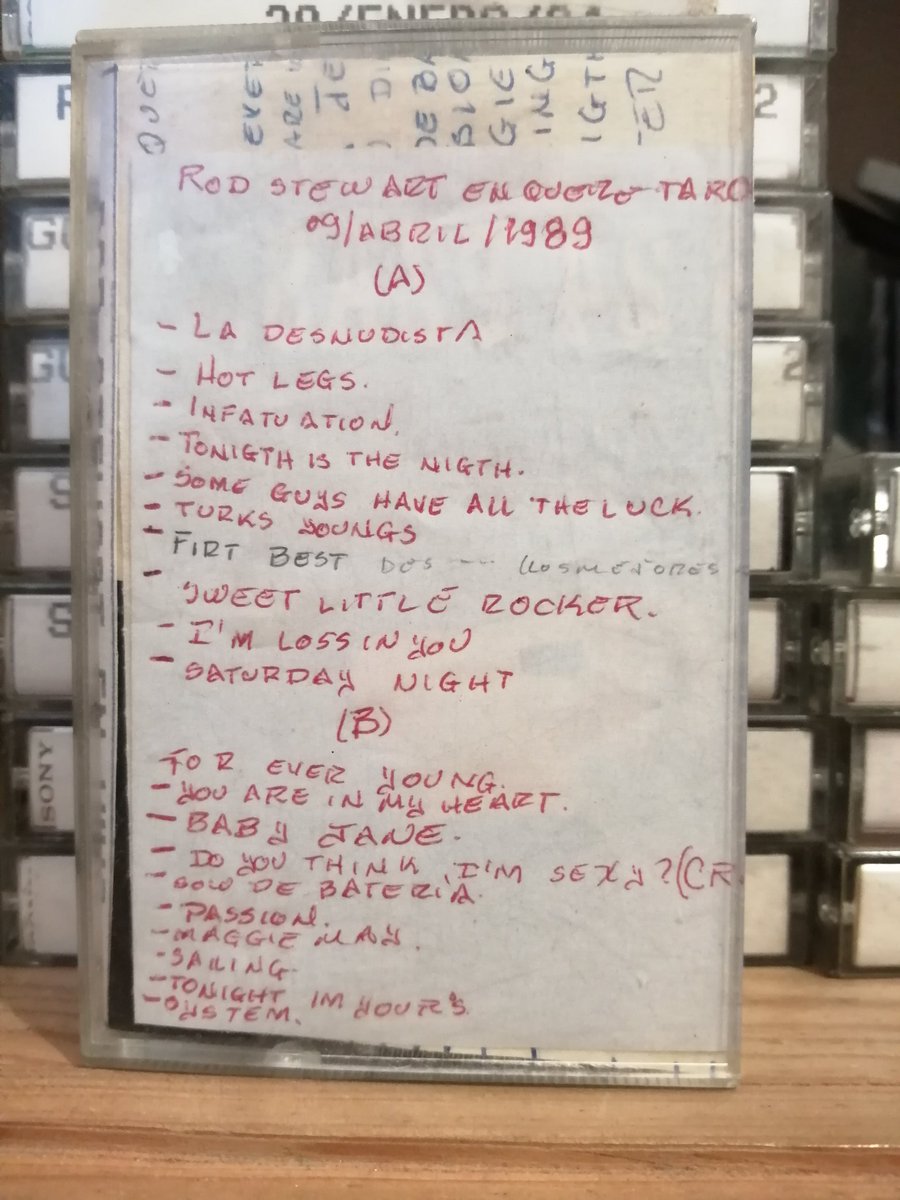 20/ENERO/91
ROD STEWART EN QUERE-TARO
09/ABRIL/1989
(A)
- LA DESNUDISTA
- HOT LEGS.
- INFATUATION.
- TONIGTH IS THE NIGTH.
- SOME GUYS HAVE ALL THE LUCK.
- TURKS YOUNGS
- FIRT BEST DOS --- LOSMEJORES
- SWEET LITTLE ROCKER.
- I'M LOSS IN YOU
- SATURDAY NIGHT
(B)
FOR EVER YOUNG.
- YOU ARE IN MY HEART.
- BABY JANE.
- DO YOU THINK I'M SEXY? (CR.
- SOLO DE BATERIA.
- PASSION.
- MAGGIE MAY.
- SAILING.
- TONIGHT IM YOUR'S
- SYSTEM.
SONY